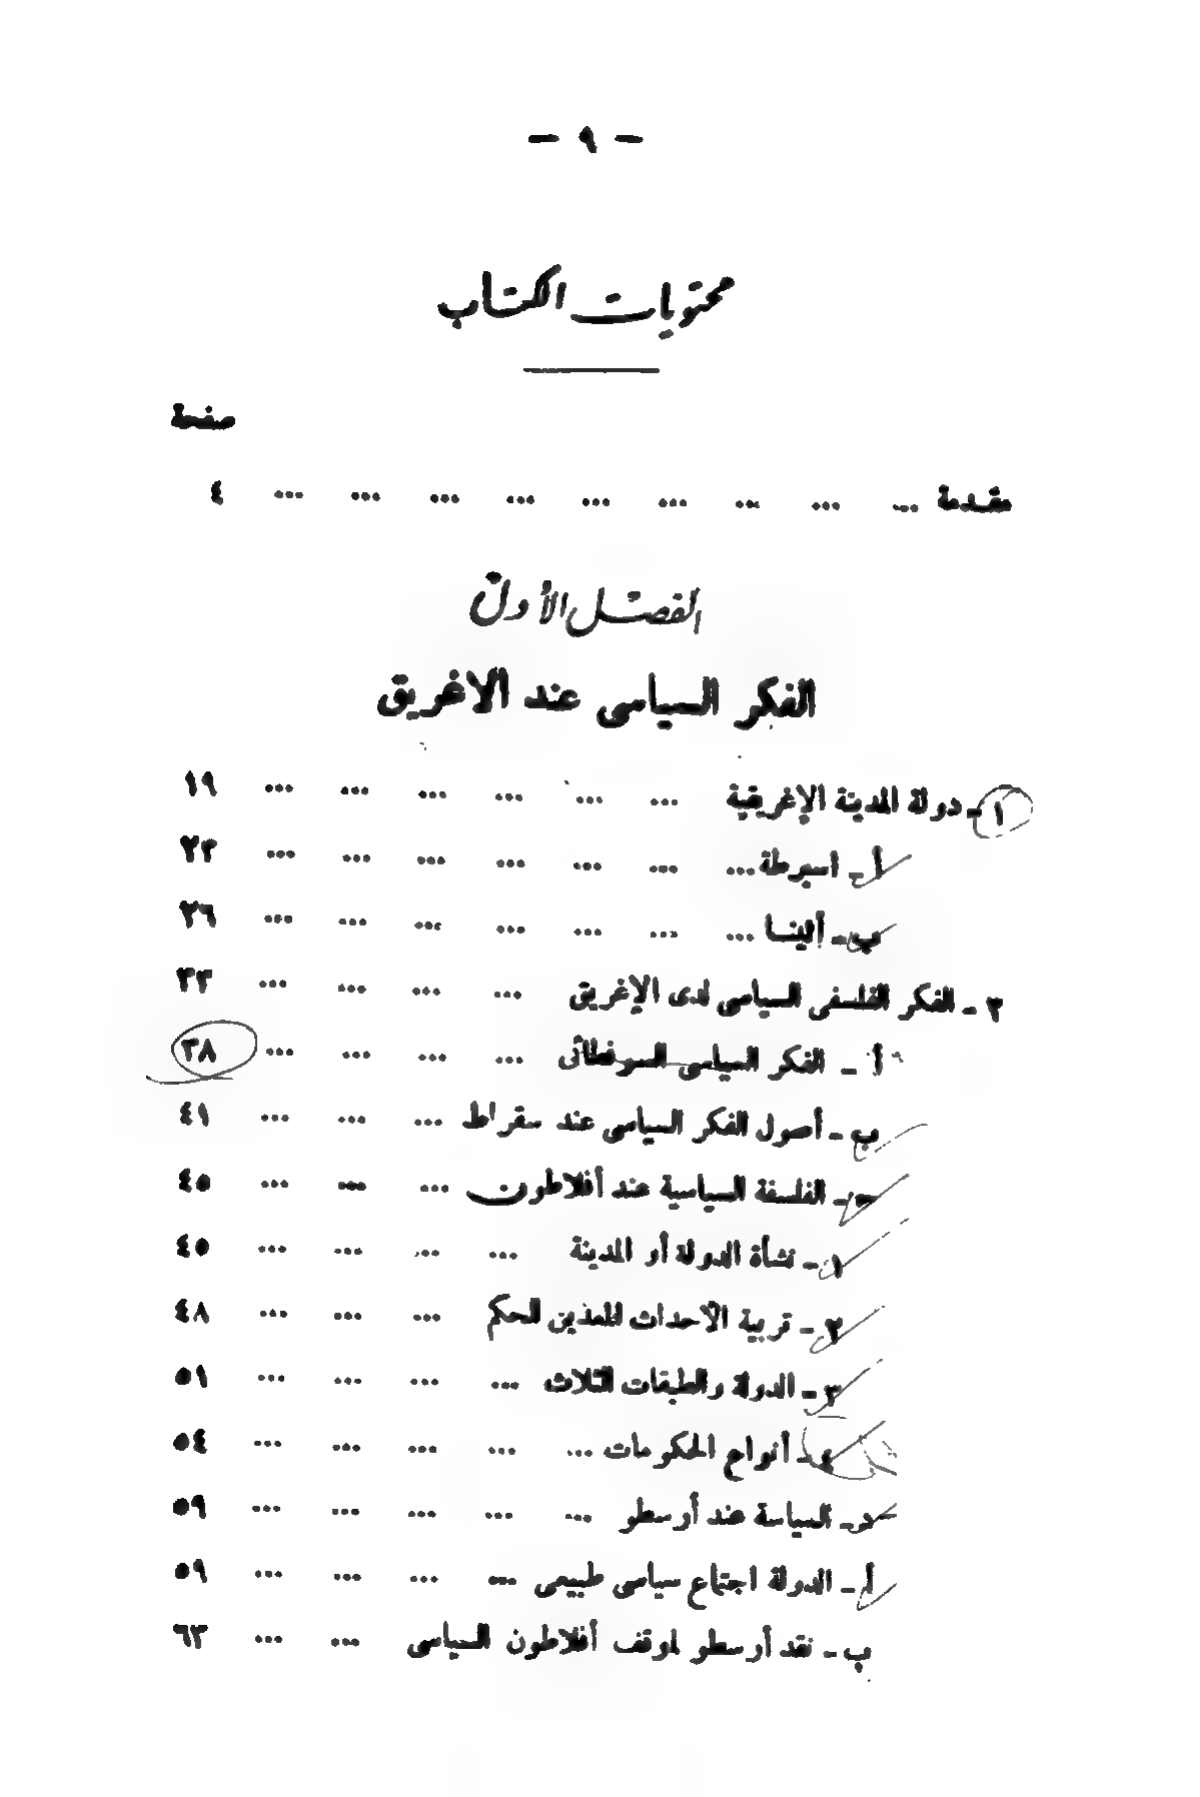 - ٩ -
محتويات الكتاب
صفحة
مقدمة ... ... ... ... ... ... ... ... ... ٤
الفصل الأول
الفكر السياسى عند الاغريق
١ - دولة المدينة الإغريقية ... ... ... ... ... ... ١٩
أ - اسبرطة ... ... ... ... ... ... ... ٢٣
ب - أثينا ... ... ... ... ... ... ... ٢٦
٢ - الفكر الفلسفى السياسى لدى الإغريق ... ... ... ... ٣٣
أ - الفكر السياسى السوفطائى ... ... ... ... ٣٨
ب - أصول الفكر السياسى عند سقراط ... ... ... ٤١
ج - الفلسفة السياسية عند أفلاطون ... ... ... ٤٥
١ - نشأة الدولة أو المدينة ... ... ... ... ٤٥
٢ - تربية الأحداث المعدين للحكم ... ... ... ٤٨
٣ - الدولة والطبقات الثلاث ... ... ... ... ٥١
٤ - أنواع الحكومات ... ... ... ... ... ٥٤
د - السياسة عند أرسطو ... ... ... ... ... ٥٩
أ - الدولة اجتماع سياسى طبيعى ... ... ... ... ٥٩
ب - نقد أرسطو لموقف أفلاطون السياسى ... ... ٦٣